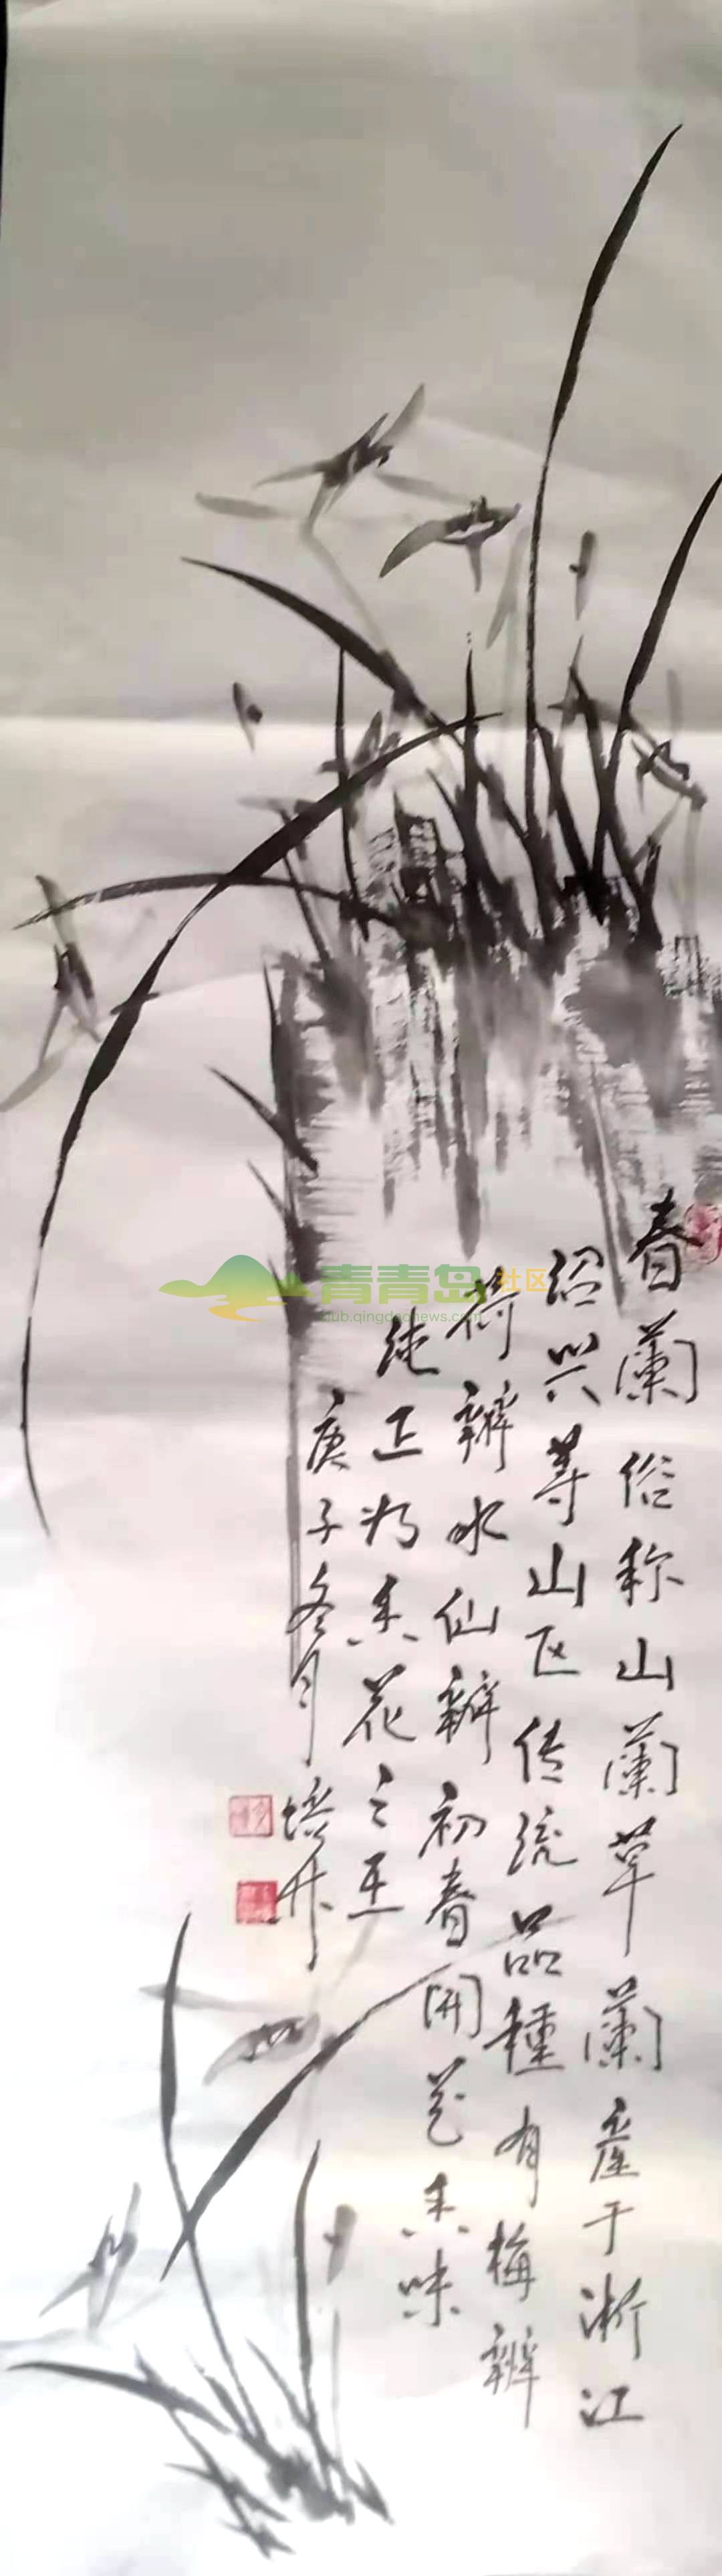 春蘭俗称山蘭草蘭産于浙江
绍兴等山区传统品種有梅瓣
荷瓣水仙瓣初春開花香味
纯正为香花之王
庚子冬月培升
青青岛社区
club.qingdaonews.com